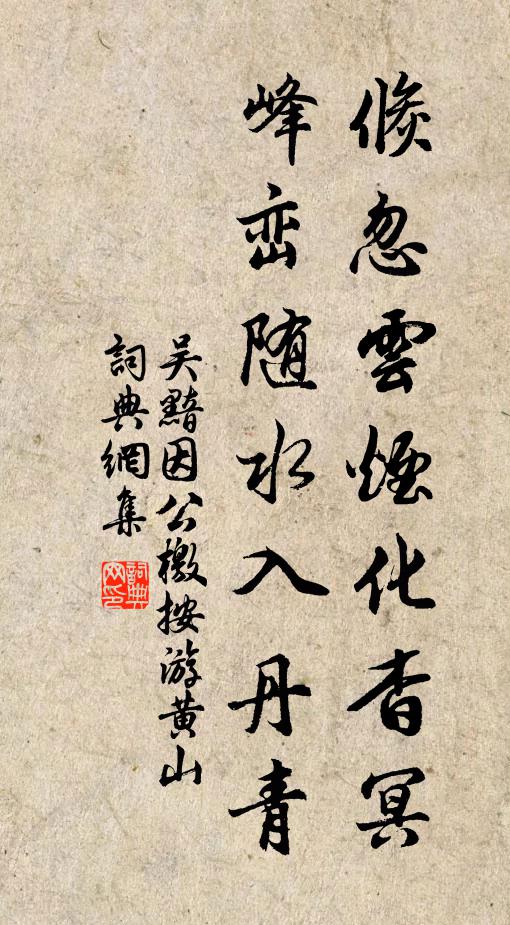 倏忽雲煙化杳冥
峰峦随水入丹青
吴黯因公檄按游黄山
詞典網集
詞典网印